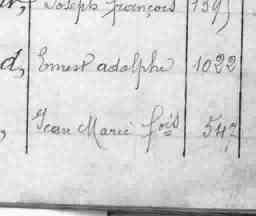 Joseph françois 139
d, Ernest adolphe 1022
, Jean Marie fois 542